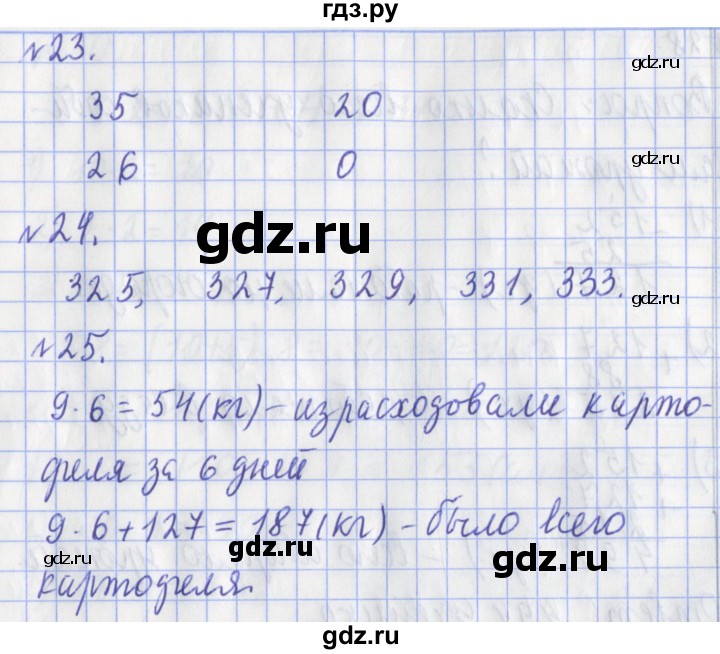 гдз.ру
№23.
gdz.ru
35 20
26 0
gdz.ru
№24.
gdz.ru
325, 327, 329, 331, 333.
gdz.ru
№25.
9·6=54(кг)-израсходовали карто-
феля за 6 дней
gdz.ru
9·6+127=187(кг)-было всего
gdz.ru
gdz.ru
gdz.ru
картофеля.
gdz.ru
gdz.ru